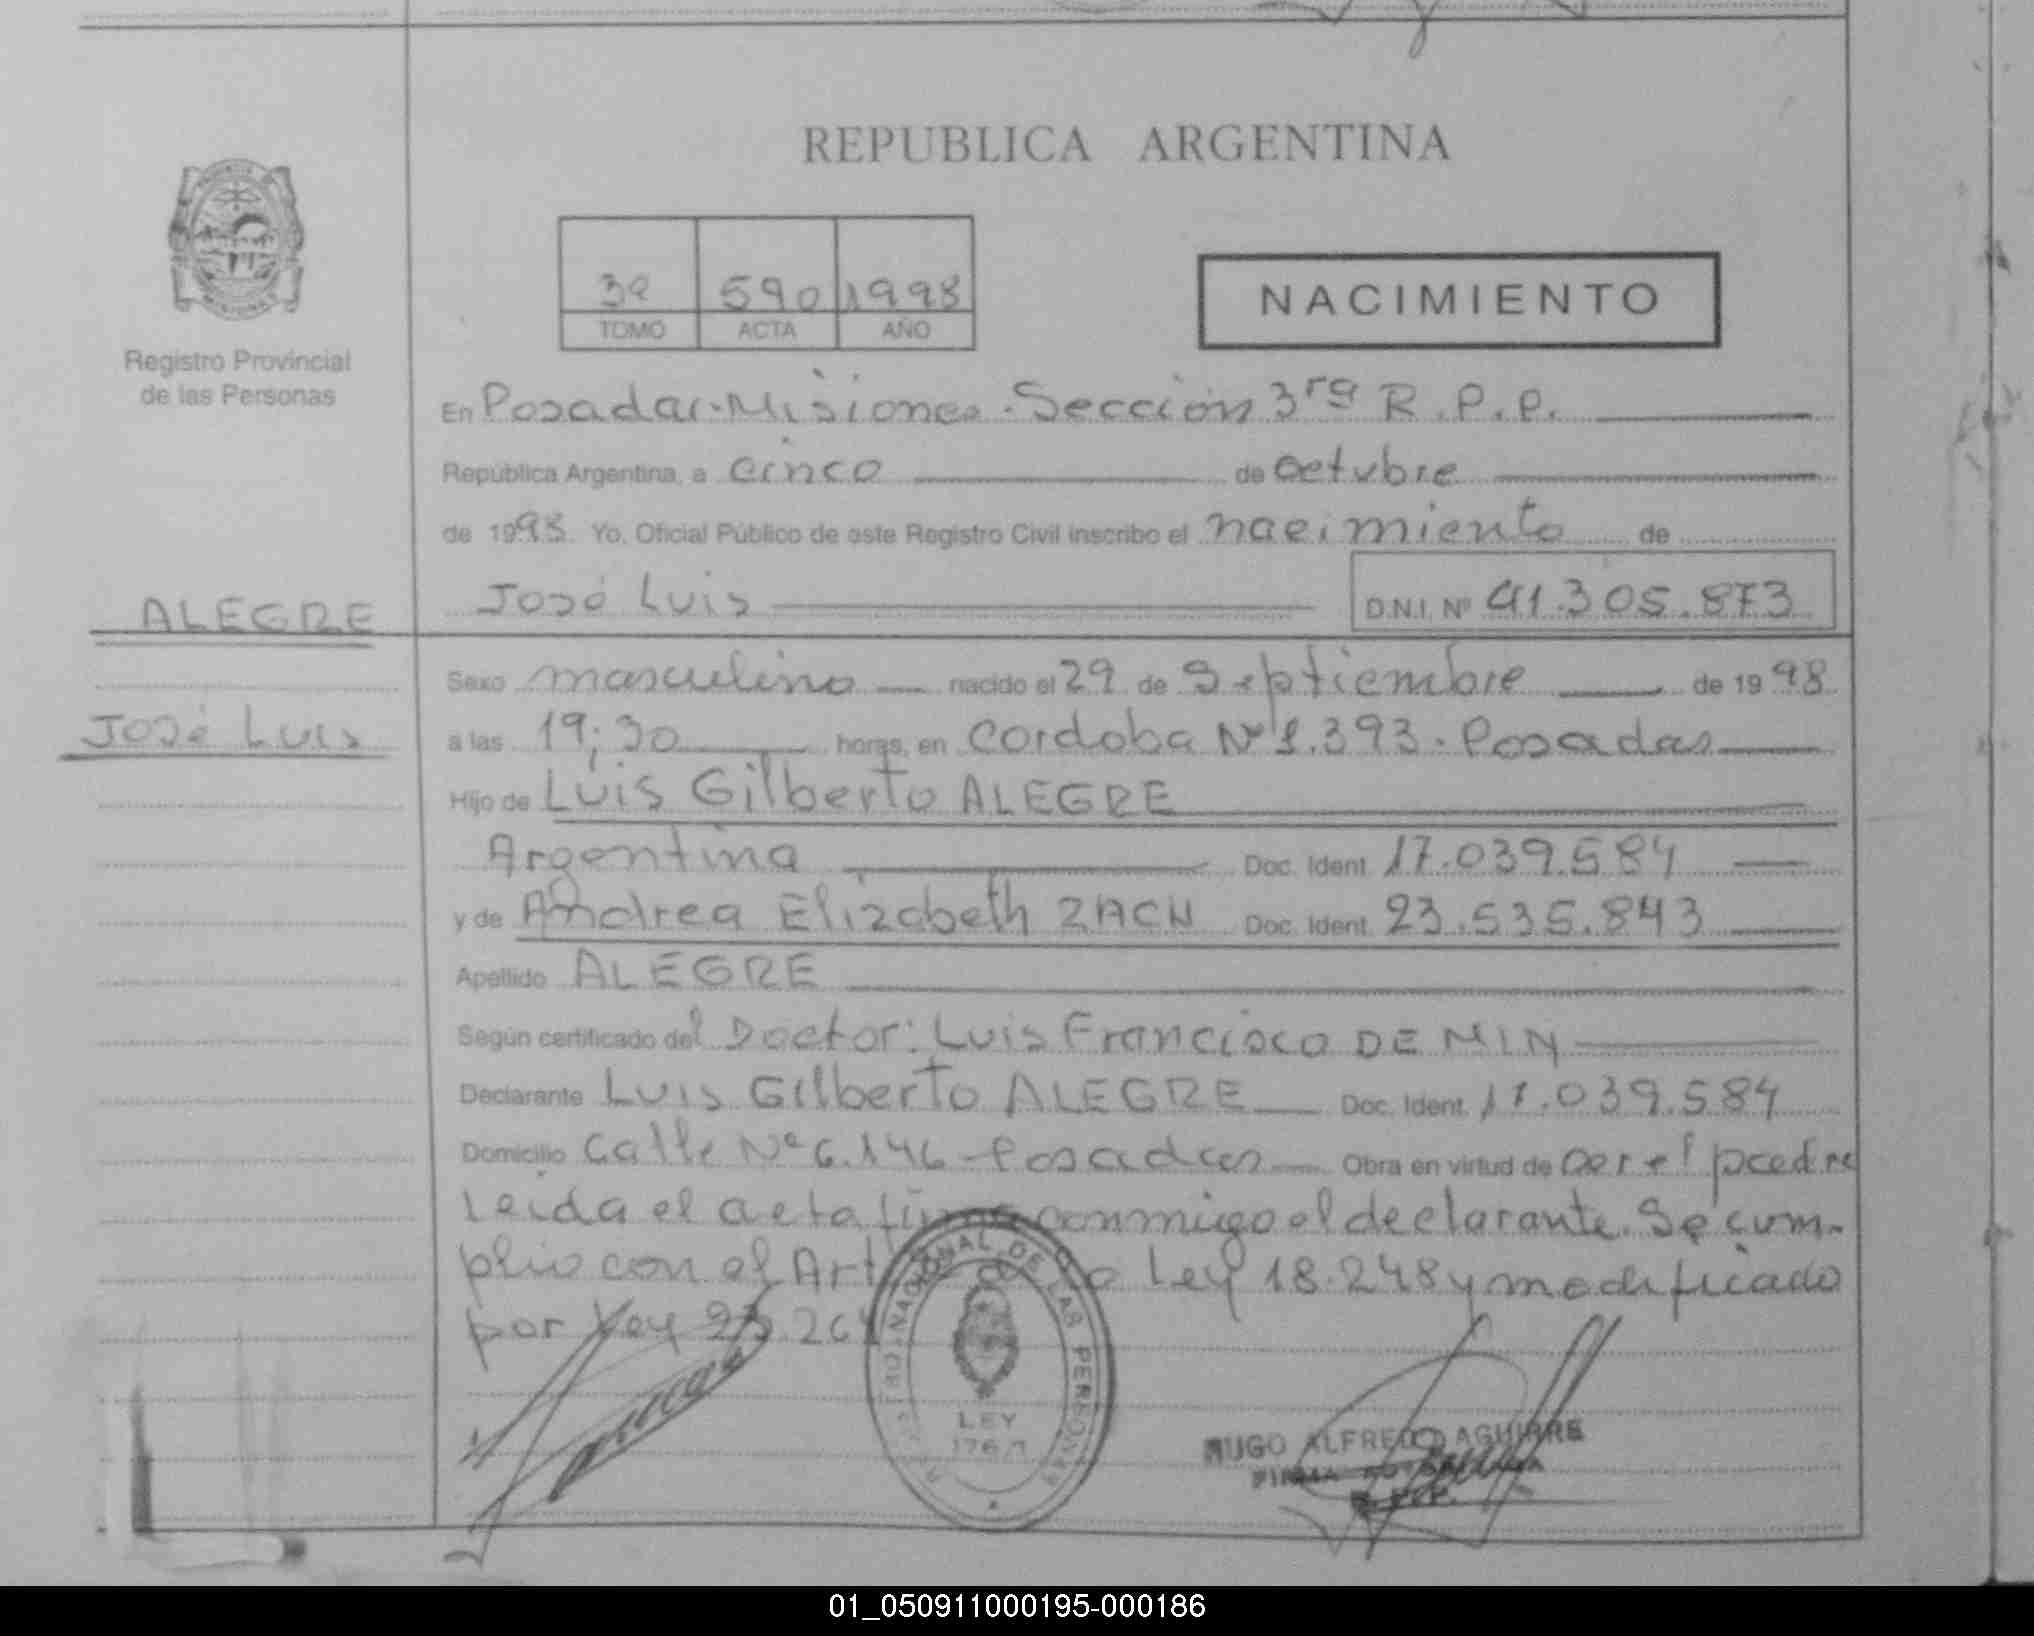 REPUBLICA ARGENTINA
3º 590 1998
TOMO ACTA AÑO
NACIMIENTO
Registro Provincial
de las Personas
En Posadas-Misiones-Sección 3ra R.P.P.
República Argentina, a cinco de octubre
de 1998 Yo, Oficial Público de este Registro Civil inscribo el nacimiento de
ALEGRE
José Luis
José Luis D.N.I. Nº 41.305.873
Sexo masculino nacido el 29 de Septiembre de 1998
a las 19;30 horas, en Cordoba Nº 1.393. Posadas
Hijo de Luis Gilberto ALEGRE
Argentina Doc. Ident. 17.039.584
y de Andrea Elizabeth ZACH Doc. Ident. 23.535.843
Apellido ALEGRE
Según certificado del Doctor: Luis Francisco DE MIN
Declarante Luis Gilberto ALEGRE Doc. Ident. 17.039.584
Domicilio Calle Nº 6.146 - Posadas Obra en virtud de ser el padre
Leida el acta firma conmigo el declarante. Se cum-
plio con el Art Ley 18.248 y modificado
por Ley 23.264
REGISTRO NACIONAL DE LAS PERSONAS
LEY
17671
HUGO ALFREDO AGUIRRE
FIRMA AUTORIZADA
R.P.P.
01_050911000195-000186